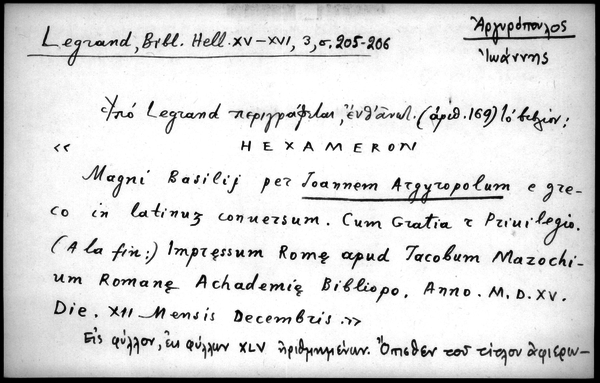 Legrand, Bibl. Hell. XV–XVI, 3, σ. 205-206
Ἀργυρόπουλος
Ἰωάννης
Ὑπό Legrand περιγράφεται, (ἀριθ. 169) τό βιβλίον:
« HEXAMERON
Magni Basilij per Joannem Argyropolum e gre-
co in latinuʒ conuersum. Cum Gratia τ Priuilegio.
(A la fin:) Impręssum Romę apud Jacobum Mazochi-
um Romanę Achademię Bibliopo. Anno. M. D. XV.
Die. XII Mensis Decembris.»
Εἰς φύλλον, ἐκ φύλλων XLV ἠριθμημένων. Ὄπισθεν τοῦ τίτλου ἀφιερω-